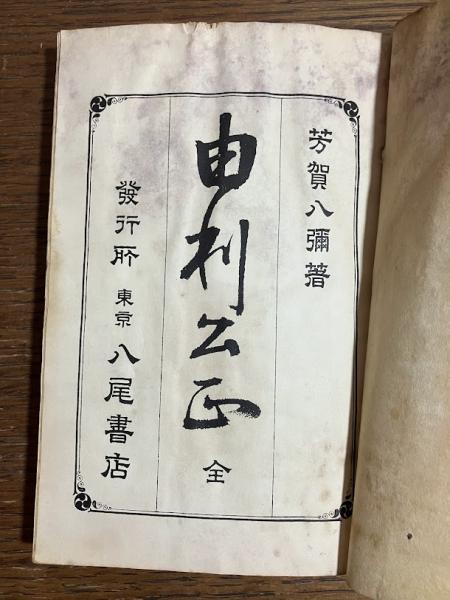 芳賀八彌著
由利公正 全
發行所 東京 八尾書店